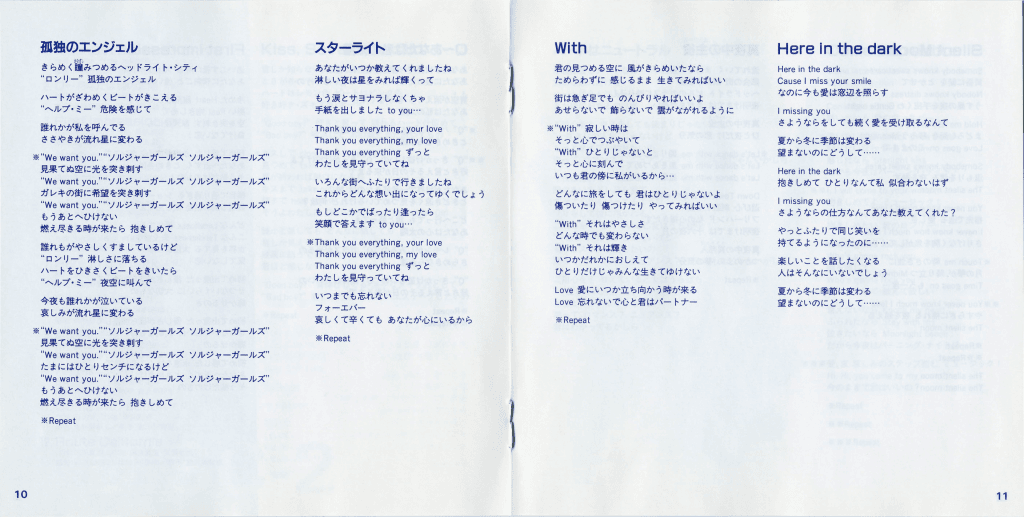 孤独のエンジェル
きらめく瞳みつめるヘッドライト・シティ
"ロンリー" 孤独のエンジェル
ハートがざわめくビートがきこえる
"ヘルプ・ミー" 危険を感じて
誰れかが私を呼んでる
ささやきが流れ星に変わる
※"We want you.""ソルジャーガールズ ソルジャーガールズ"
見果てぬ空に光を突き刺す
"We want you.""ソルジャーガールズ ソルジャーガールズ"
ガレキの街に希望を突き刺す
"We want you.""ソルジャーガールズ ソルジャーガールズ"
もうあとへひけない
燃え尽きる時が来たら 抱きしめて
誰れもがやさしくすましているけど
"ロンリー" 淋しさに落ちる
ハートをひきさくビートをきいたら
"ヘルプ・ミー" 夜空に叫んで
今夜も誰れかが泣いている
哀しみが流れ星に変わる
※"We want you.""ソルジャーガールズ ソルジャーガールズ"
見果てぬ空に光を突き刺す
"We want you.""ソルジャーガールズ ソルジャーガールズ"
たまにはひとりセンチになるけど
"We want you.""ソルジャーガールズ ソルジャーガールズ"
もうあとへひけない
燃え尽きる時が来たら 抱きしめて
※Repeat
10
スターライト
あなたがいつか教えてくれましたね
淋しい夜は星をみれば輝くって
もう涙とサヨナラしなくちゃ
手紙を出しました to you…
Thank you everything, your love
Thank you everything, my love
Thank you everything ずっと
わたしを見守っていてね
いろんな街へふたりで行きましたね
これからどんな想い出になってゆくでしょう
もしどこかでばったり逢ったら
笑顔で答えます to you…
※Thank you everything, your love
Thank you everything, my love
Thank you everything ずっと
わたしを見守っていてね
いつまでも忘れない
フォーエバー
哀しくて辛くても あなたが心にいるから
※Repeat
With
君の見つめる空に 風がきらめいたなら
ためらわずに 感じるまま 生きてみればいい
街は急ぎ足でも のんびりやればいいよ
あせらないで 飾らないで 雲がながれるように
※"With" 寂しい時は
そっと心でつぶやいて
"With" ひとりじゃないと
そっと心に刻んで
いつも君の傍に私がいるから…
どんなに旅をしても 君はひとりじゃないよ
傷ついたり 傷つけたり やってみればいい
"With" それはやさしさ
どんな時でも変わらない
"With" それは輝き
いつかだれかにおしえて
ひとりだけじゃみんな生きてゆけない
Love 愛にいつか立ち向かう時が来る
Love 忘れないで心と君はパートナー
※Repeat
Here in the dark
Here in the dark
Cause I miss your smile
なのに今も愛は窓辺を照らす
I missing you
さようならをしても続く愛を受け取るなんて
夏から冬に季節は変わる
望まないのにどうして……
Here in the dark
抱きしめて ひとりなんて私 似合わないはず
I missing you
さようならの仕方なんてあなた教えてくれた？
やっとふたりで同じ笑いを
持てるようになったのに……
楽しいことを話したくなる
人はそんなにいないでしょう
夏から冬に季節は変わる
望まないのにどうして……
11